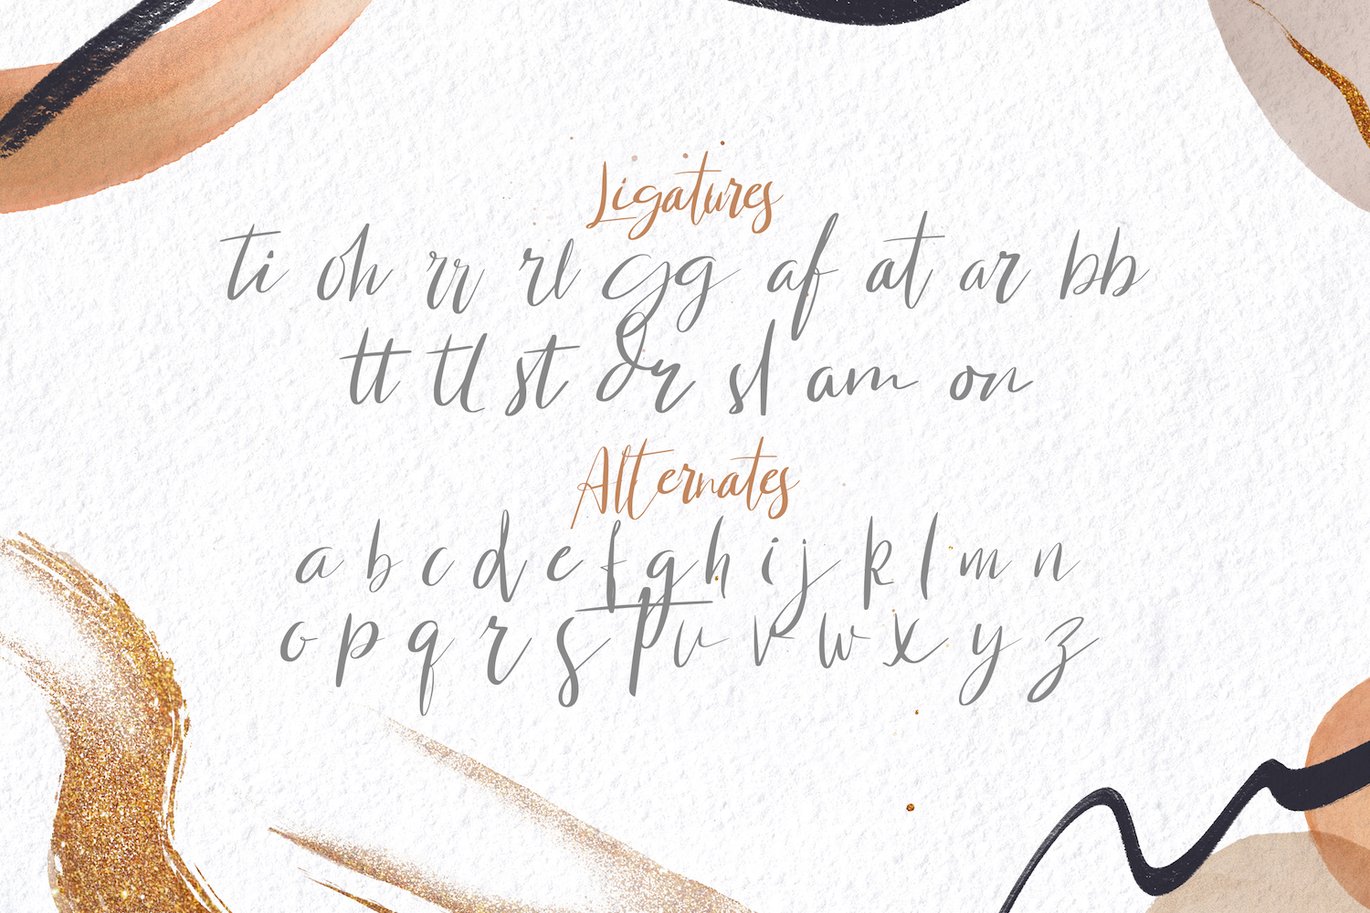 Ligatures
ti oh rr rl gg af at ar bb
tt tl st or sl am on
Alternates
a b c d e f g h i j k l m n
o p q r s t u v w x y z